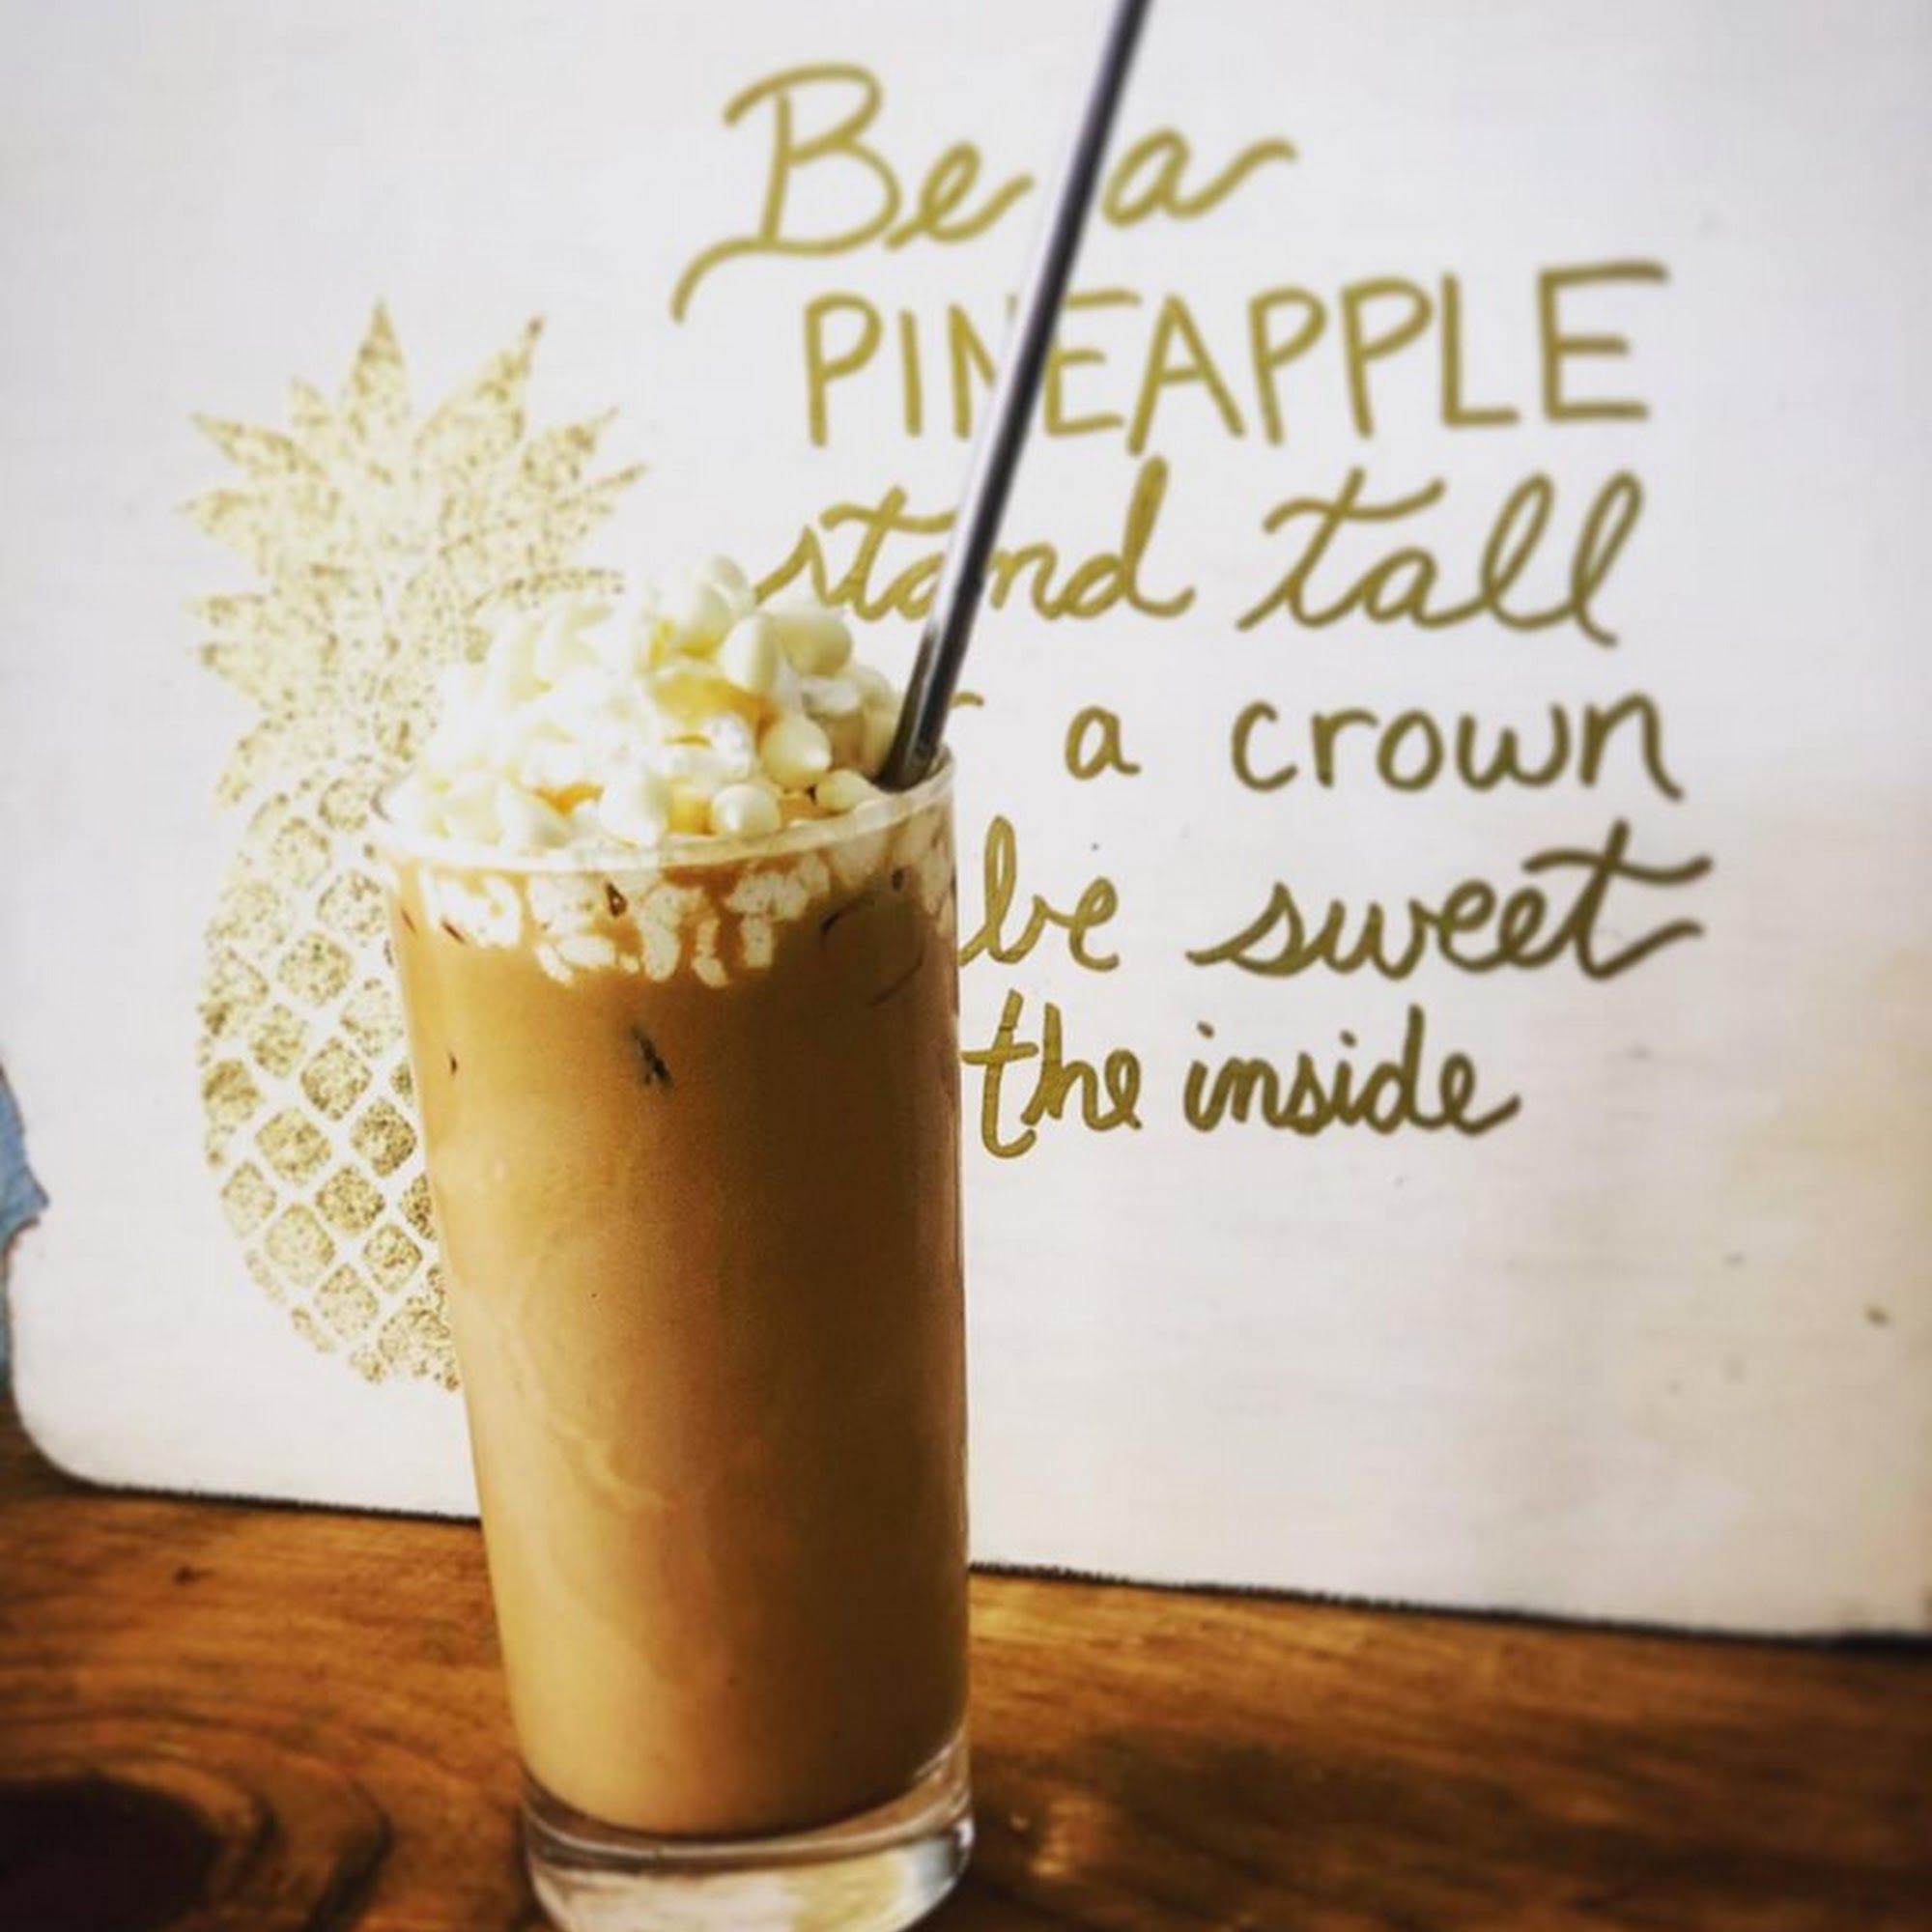 Be a
PINEAPPLE
stand tall
a crown
be sweet
the inside